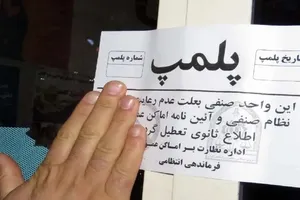 شماره پلمپ
تاریخ پلمپ
پلمپ
این واحد صنفی بعلت عدم رعایت
نظام صنفی و آئین نامه اماکن
اطلاع ثانوی تعطیل
اداره نظارت بر اماکن
فرماندهی انتظامی